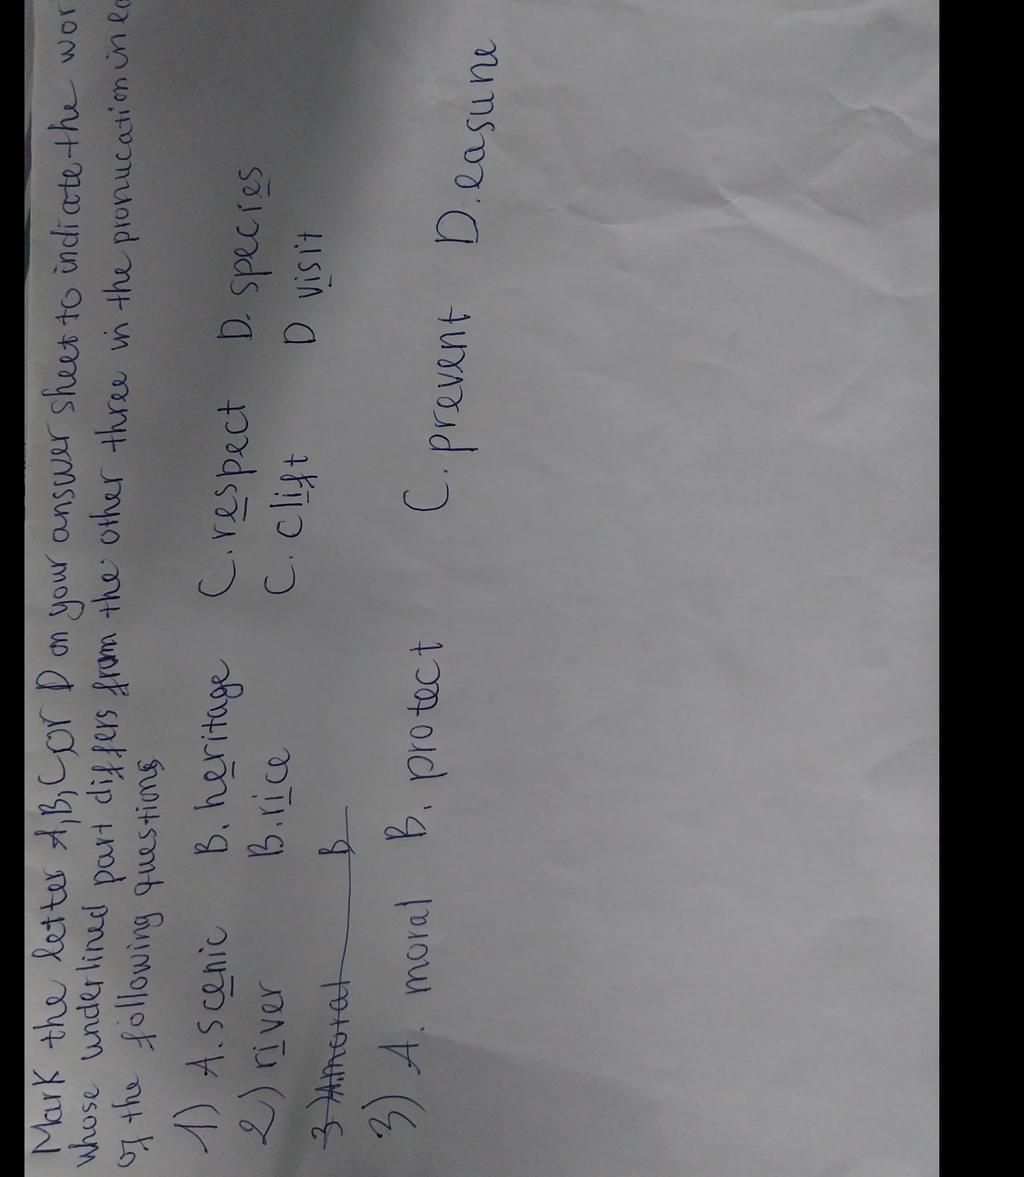 Mark the letter A,B,C or D on your answer sheet to indicate the wor
whose underlined part differs from the other three in the pronucation in ea
of the following questions
1) A. scenic B. heritage C. respect D. species
2) river B. rice C. clift D visit
3) A. moral B
3) A. moral B. protect C. prevent D. easune